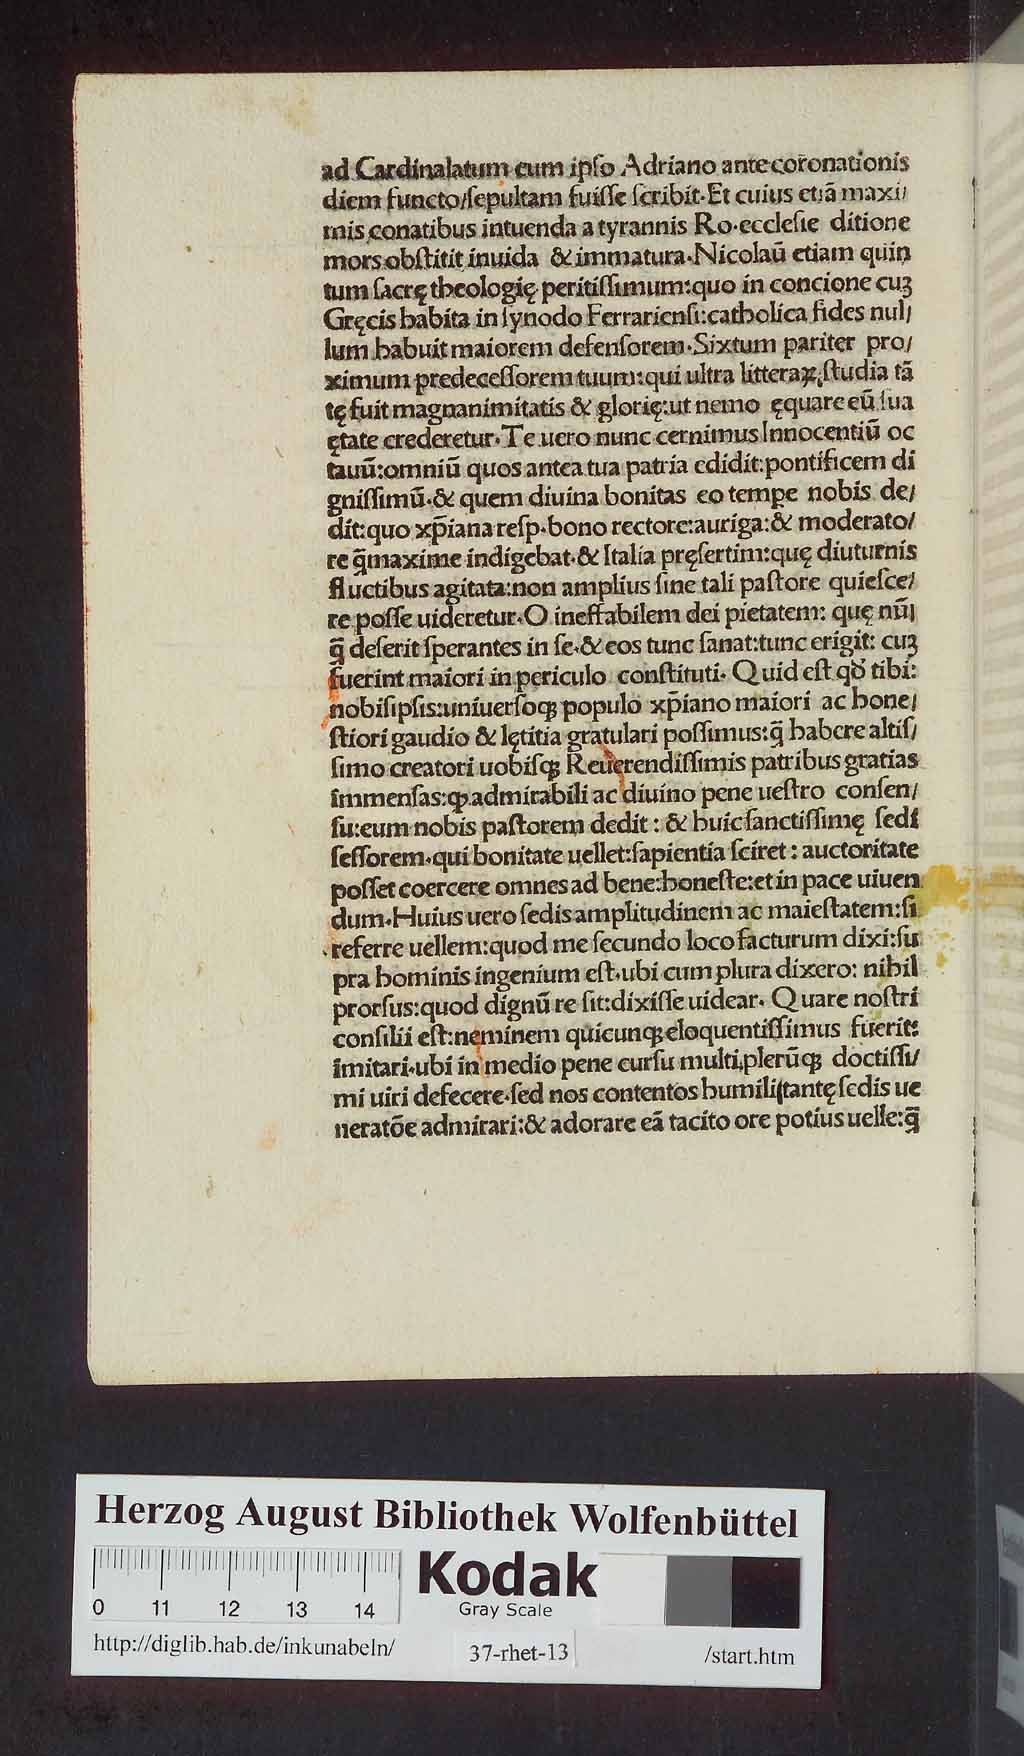 ad Cardinalatum cum ipſo Adriano ante coronationis
diem functo/ſepultam fuiſſe ſcribit·Et cuius etiā maxi/
mis conatibus intuenda a tyrannis Ro·eccleſie ditione
mors obſtitit inuida & immatura·Nicolaū etiam quin
tum ſacrę theologię peritiſſimum:quo in concione cuꝫ
Gręcis habita in ſynodo Ferrarienſi:catholica fides nul/
lum habuit maiorem defenſorem·Sixtum pariter pro/
ximum predeceſſorem tuum:qui ultra litteraꝝ ſtudia tā
tę fuit magnanimitatis & glorię:ut nemo ęquare eū ſua
ętate crederetur·Te uero nunc cernimus Innocentiū oc
tauū:omniū quos antea tua patria edidit:pontificem di
gniſſimū·& quem diuina bonitas eo tempe nobis de/
dit:quo xp̄iana reſp·bono rectore:auriga:& moderato/
re q̄maxime indigebat·& Italia pręſertim:quę diuturnis
fluctibus agitata:non amplius ſine tali paſtore quieſce/
re poſſe uideretur·O ineffabilem dei pietatem: quę nū/
q̄ deſerit ſperantes in ſe·& eos tunc ſanat:tunc erigit: cuꝫ
fuerint maiori in periculo conſtituti· Quid eſt qđ tibi:
nobiſipſis:uniuerſoqꝫ populo xp̄iano maiori ac hone/
ſtiori gaudio & lętitia gratulari poſſimus:q̄ habere altiſ/
ſimo creatori uobiſqꝫ Reuerendiſſimis patribus gratias
immenſas:ꝙ admirabili ac diuino pene ueſtro conſen/
ſu:eum nobis paſtorem dedit : & huic ſanctiſſimę ſedi
ſeſſorem·qui bonitate uellet:ſapientia ſciret : auctoritate
poſſet coercere omnes ad bene:honeſte:et in pace uiuen
dum·Huius uero ſedis amplitudinem ac maieſtatem:ſi
referre uellem:quod me ſecundo loco facturum dixi:ſu
pra hominis ingenium eſt·ubi cum plura dixero: nihil
prorſus:quod dignū re ſit:dixiſſe uidear· Quare noſtri
conſilii eſt:neminem quicunqꝫ eloquentiſſimus fuerit:
imitari·ubi in medio pene curſu multi,plerūqꝫ doctiſſi/
mi uiri defecere·ſed nos contentos humili/tantę ſedis ue
neratōe admirari:& adorare eā tacito ore potius uelle:q̄
Herzog August Bibliothek Wolfenbüttel
0 11 12 13 14
Kodak
Gray Scale
http://diglib.hab.de/inkunabeln/ 37-rhet-13 /start.htm